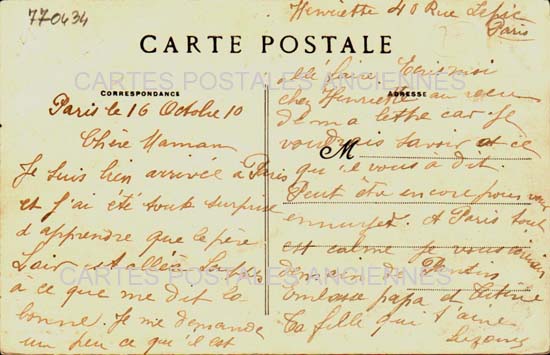 770434
Henriette 40 Rue Lepic
Paris
CARTE POSTALE
CARTES POSTALES ANCIENNES
CORRESPONDANCE
ADRESSE
Paris le 16 Octobre 10
Chère Maman
Je suis bien arrivée à Paris
et j'ai été toute surprise
d'apprendre que le père
est allée
a ce que me dit la
bonne. Je me demande
un peu ce qu'il est
allé faire. Ecris moi
chez Henriette au reçu
de ma lettre car je
voudrais savoir ce
M
qu'il vous a dit.
Peut être encore pour vous
ennuyer. A Paris tout
est calme je vous
demain
embrasse papa et Titine
Ta fille qui t'aime
CARTES POSTALES ANCIENNES